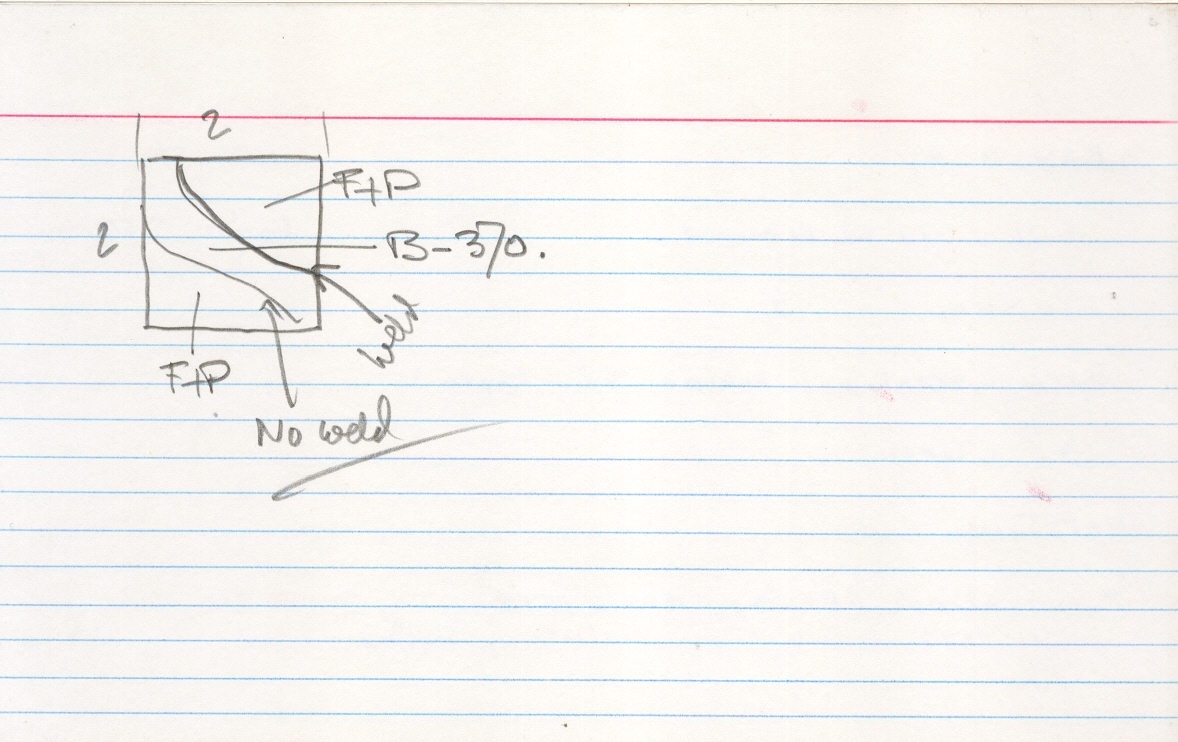 2
F+P
2
B-370.
Weld
F+P
No weld